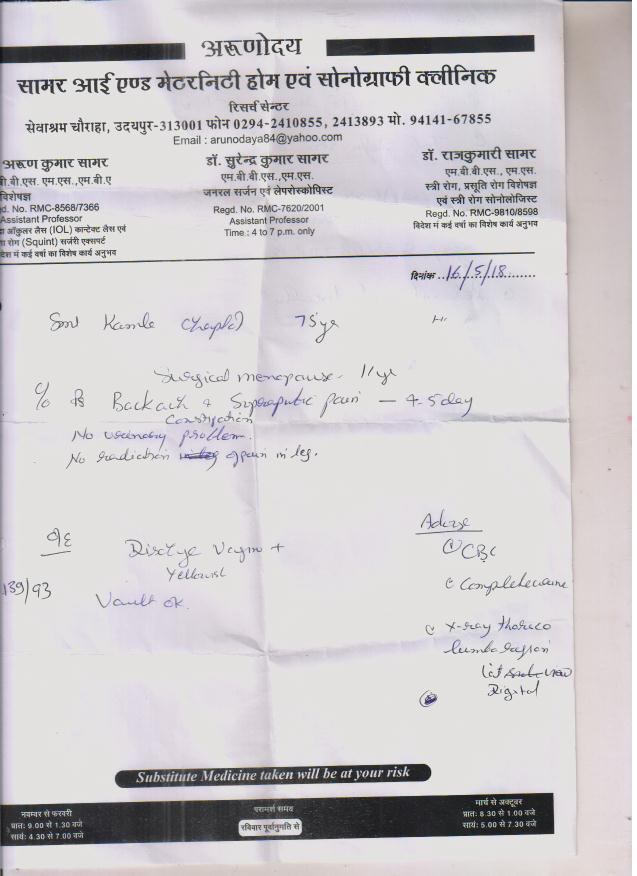 अरूणोदय
सामर आई एण्ड मेटरनिटी होम एवं सोनोग्राफी क्लीनिक
रिसर्च सेन्टर
सेवाश्रम चौराहा, उदयपुर-313001 फोन 0294-2410855, 2413893 मो. 94141-67855
Email : arunodaya84@yahoo.com
अरूण कुमार सामर
बी.बी.एस. एम.एस.,एम.बी.ए
विशेषज्ञ
gd. No. RMC-8568/7366
Assistant Professor
ऑकुलर लैंस (IOL) कान्टेक्ट लैस एवं
रोग (Squint) सर्जरी एक्सपर्ट
देश में कई वर्षा का विशेष कार्य अनुभव
डॉ. सुरेन्द्र कुमार सामर
एम.बी.बी.एस.,एम.एस.
जनरल सर्जन एवं लेपरोस्कोपिस्ट
Regd. No. RMC-7620/2001
Assistant Professor
Time : 4 to 7 p.m. only
डॉ. राजकुमारी सामर
एम.बी.बी.एस., एम.एस.
स्त्री रोग, प्रसूति रोग विशेषज्ञ
एवं स्त्री रोग सोनोलोजिस्ट
Regd. No. RMC-9810/8598
विदेश में कई वर्षा का विशेष कार्य अनुभव
दिनांक ..16/5/18........
Smt Kamla 75 yr
Surgical menopause - 11 yr
c/o Backach & Suprapubic pain - 4-5 day
Constipation
No urinary problem.
No radiation of pain in leg.
O/E
+
Yellowish
139/93
Vault OK.
Advise
CBC
Complete urine
X-ray thoraco
lumbar
Lat view
Digital
Substitute Medicine taken will be at your risk
नवम्बर से फरवरी
प्रातः 9.00 से 1.30 बजे
सायं: 4.30 से 7.00 बजे
परामर्श समय
रविवार पूर्वानुमति से
मार्च से अक्टूबर
प्रातः 8.30 से 1.00 बजे
सायं: 5.00 से 7.30 बजे